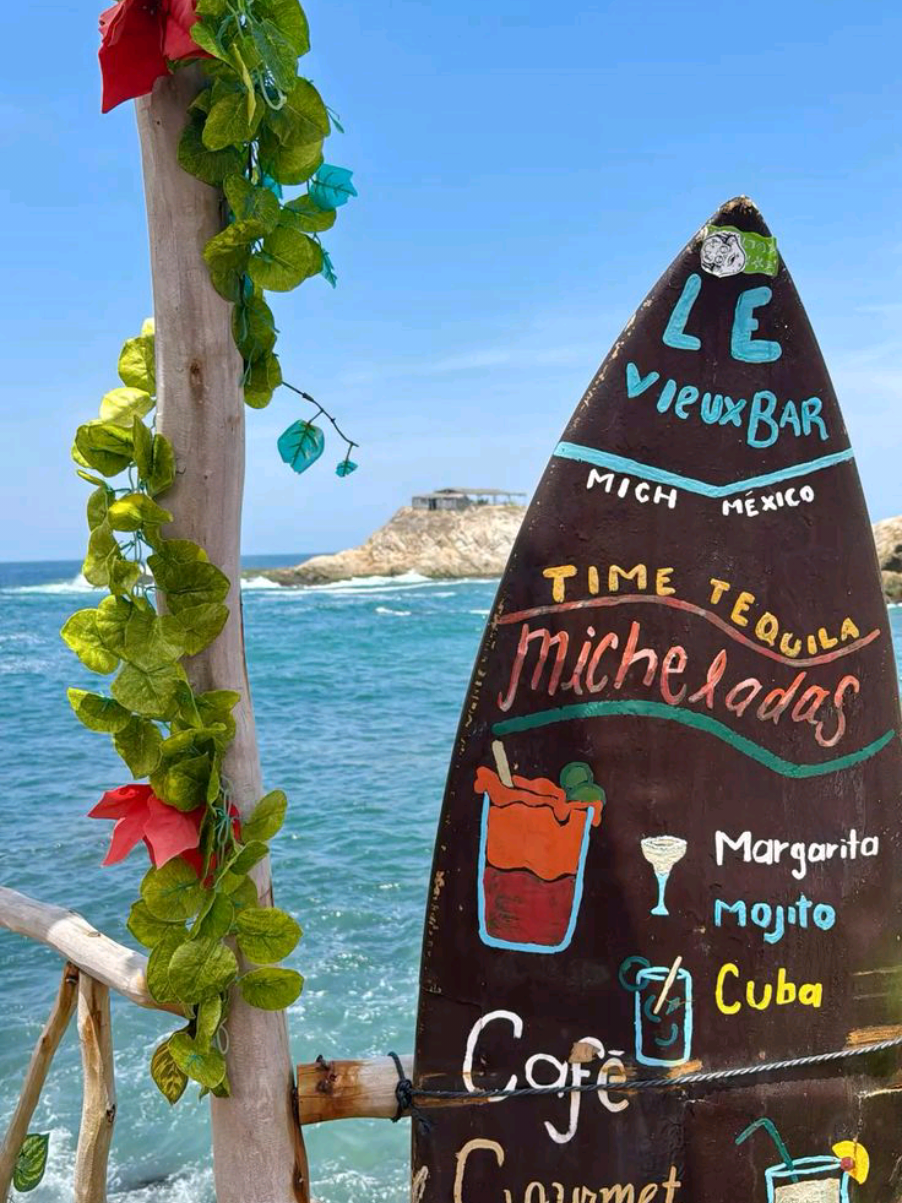 LE
VIEUXBAR
MICH MÉXICO
TIME TEQUILA
Micheladas
Margarita
Mojito
Cuba
Café
Gourmet